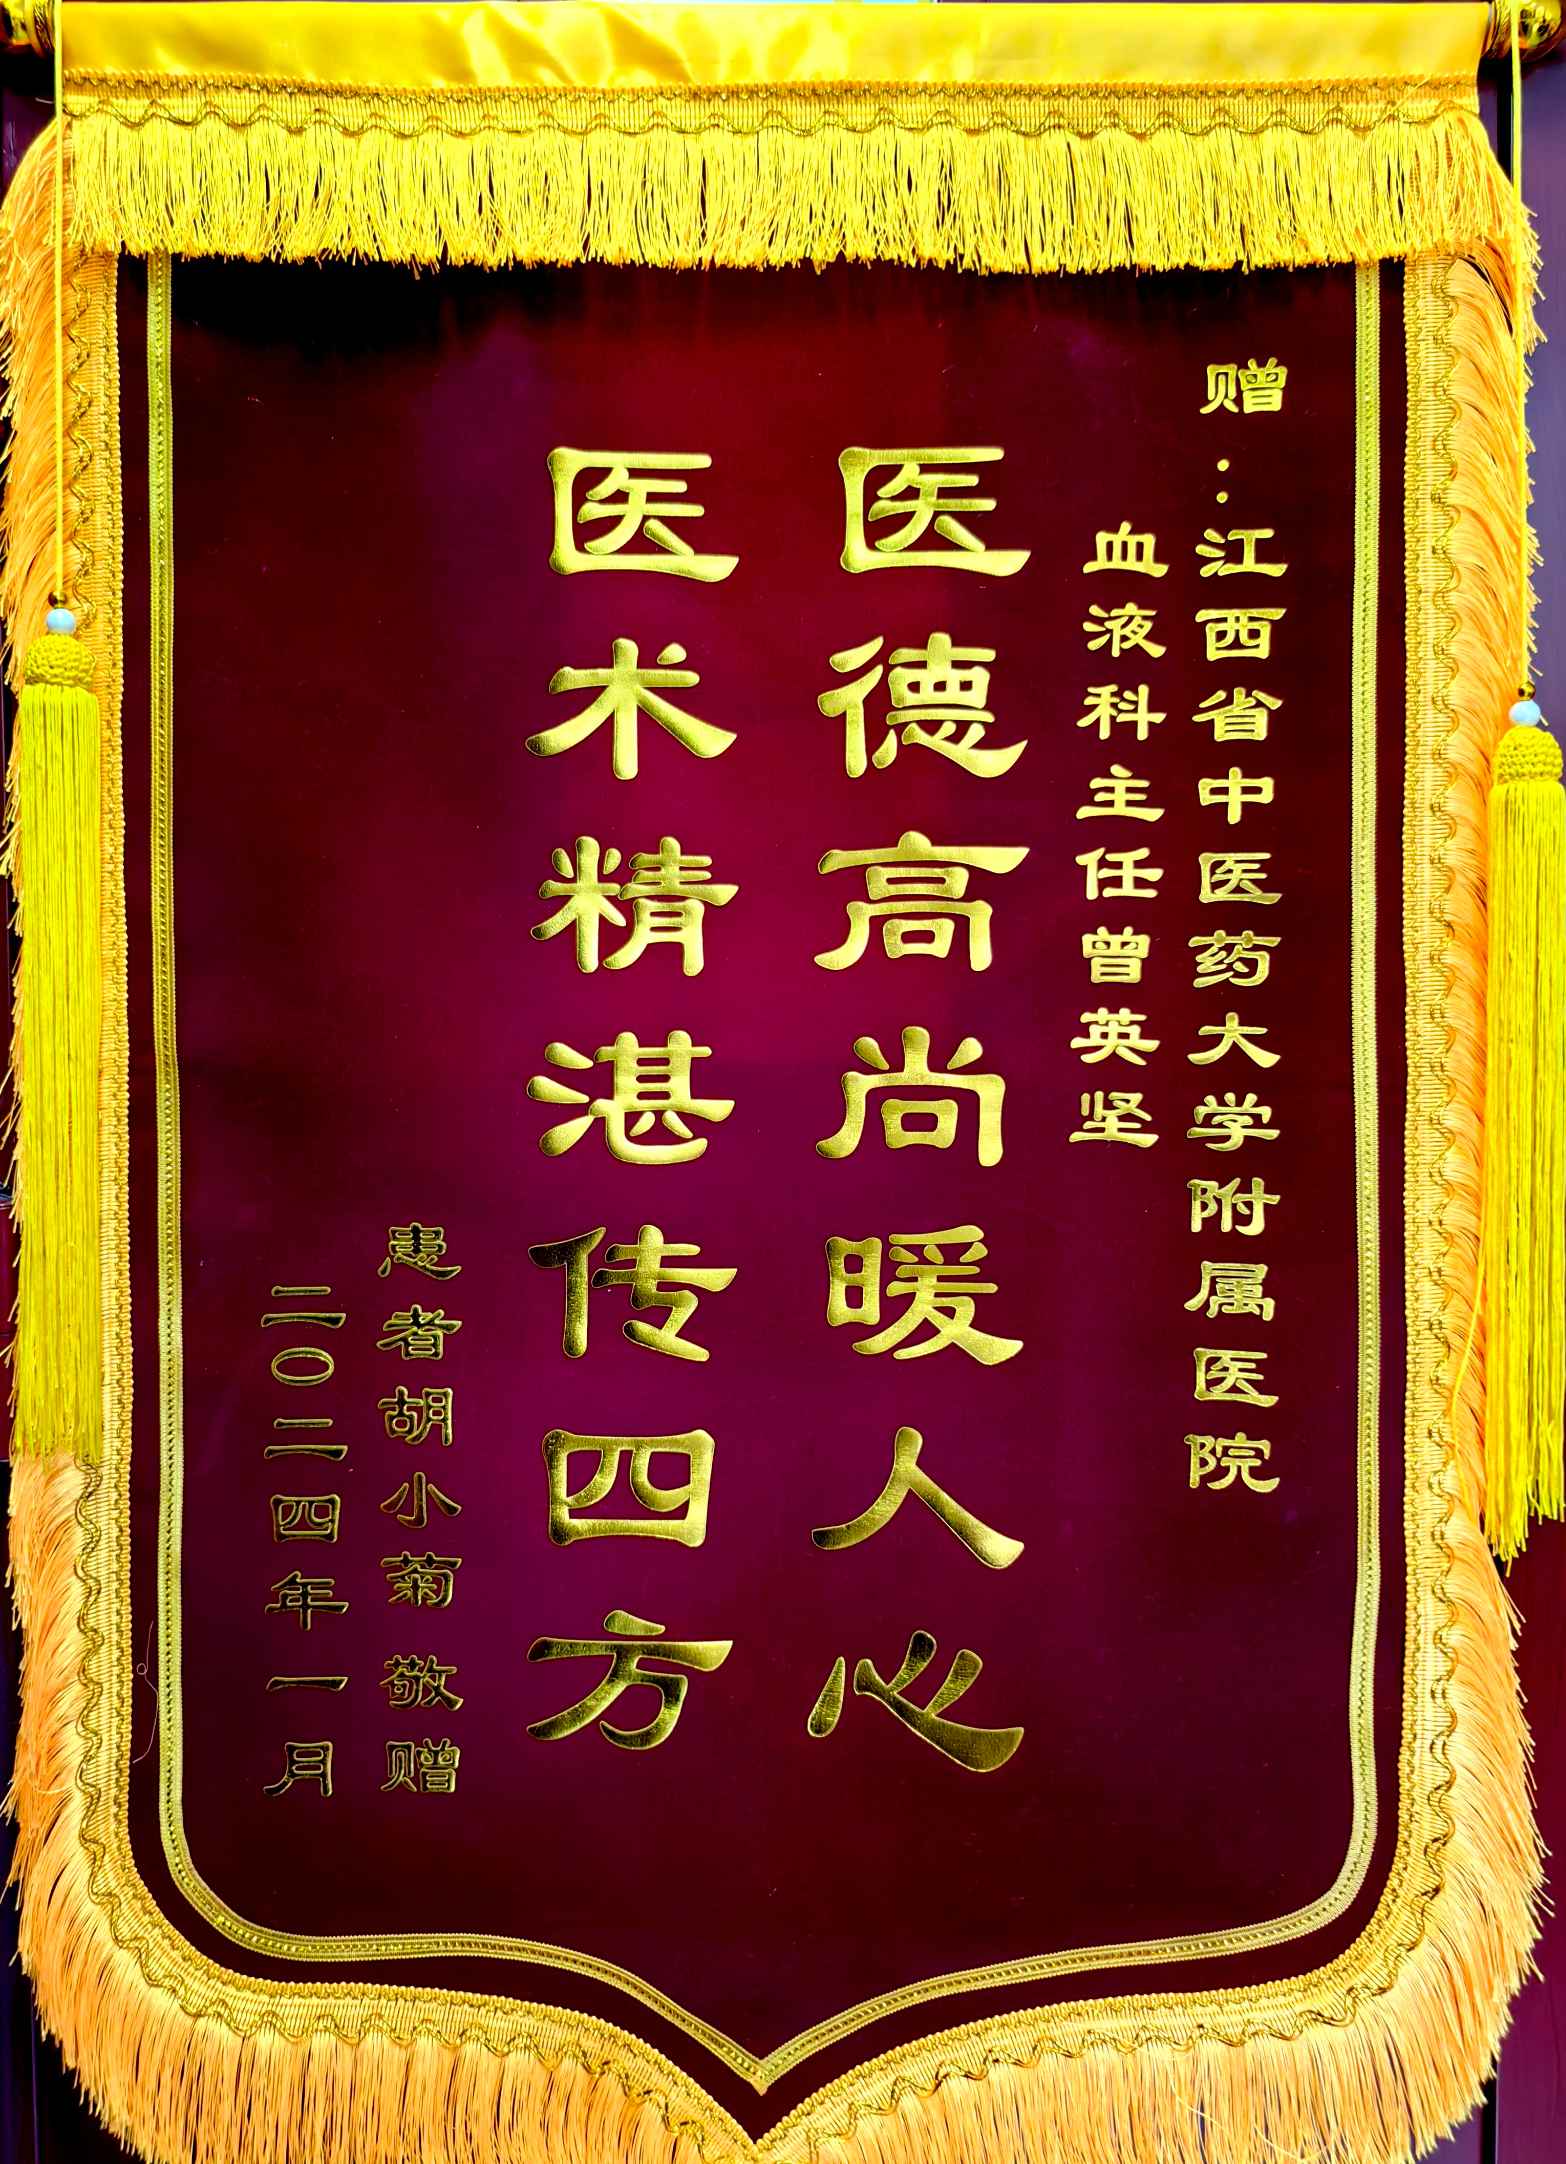 赠：江西省中医药大学附属医院
血液科主任曾英坚
医德高尚暖人心
医术精湛传四方
患者胡小菊敬赠
二〇二四年一月